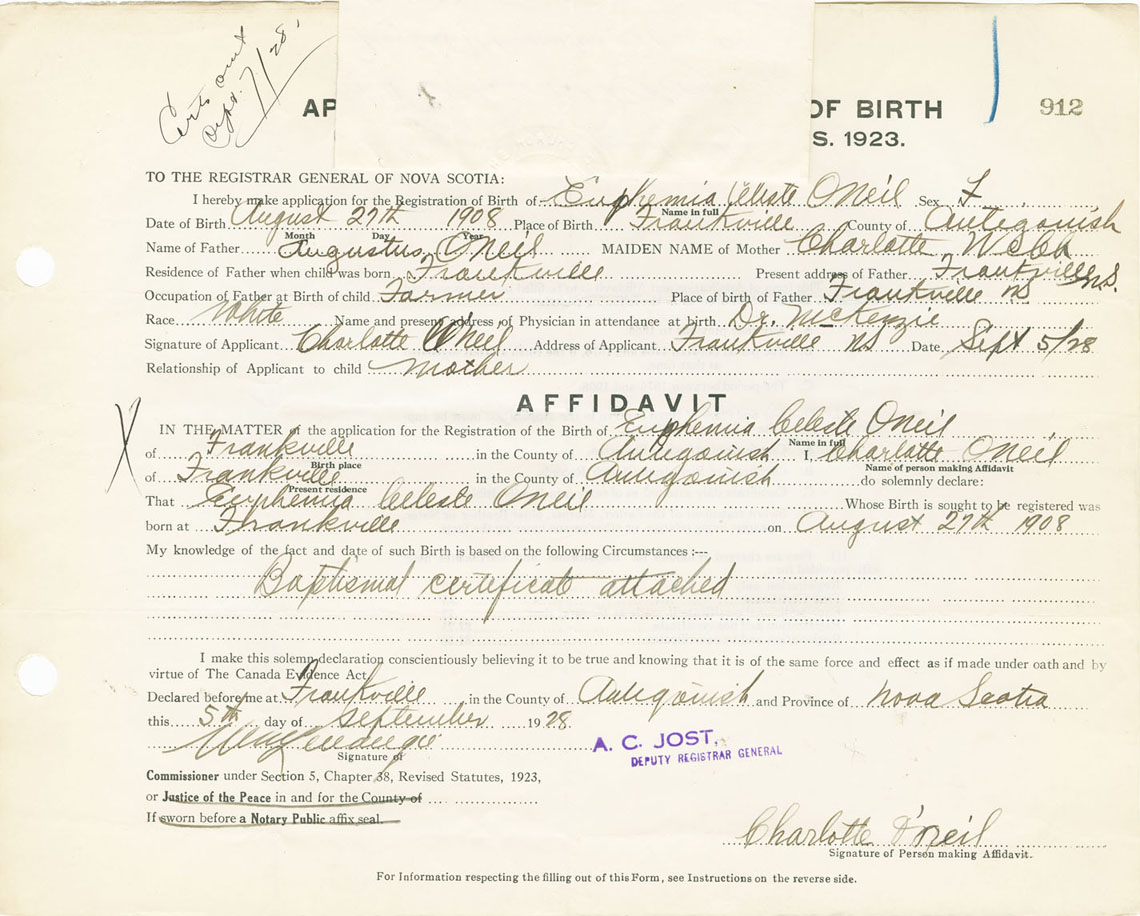 Certs out
Sept. 7/28
AP OF BIRTH 912
S. 1923.
TO THE REGISTRAR GENERAL OF NOVA SCOTIA:
I hereby make application for the Registration of Birth of Euphemia Celeste ONeil Sex F
Name in full
Date of Birth August 27th 1908 Place of Birth Frankville County of Antigonish
Month Day Year
Name of Father Augustus O'Neil MAIDEN NAME of Mother Charlotte Webb
Residence of Father when child was born Frankville Present address of Father Frankville N.S.
Occupation of Father at Birth of child Farmer Place of birth of Father Frankville NS
Race White Name and present address of Physician in attendance at birth Dr. McKenzie
Signature of Applicant Charlotte O'Neil Address of Applicant Frankville NS Date Sept 5/28
Relationship of Applicant to child Mother
AFFIDAVIT
X
IN THE MATTER of the application for the Registration of the Birth of Euphemia Celeste ONeil
Name in full
of Frankville in the County of Antigonish I, Charlotte ONeil
Birth place Name of person making Affidavit
of Frankville in the County of Antigonish do solemnly declare:
Present residence
That Euphemia Celeste ONeil Whose Birth is sought to be registered was
born at Frankville on August 27th 1908
My knowledge of the fact and date of such Birth is based on the following Circumstances :---
Baptismal certificate attached
I make this solemn declaration conscientiously believing it to be true and knowing that it is of the same force and effect as if made under oath and by
virtue of The Canada Evidence Act.
Declared before me at Frankville in the County of Antigonish and Province of Nova Scotia
this 5th day of September 1928.
Signature of
A. C. JOST,
DEPUTY REGISTRAR GENERAL
Commissioner under Section 5, Chapter 38, Revised Statutes, 1923,
or Justice of the Peace in and for the County of
If sworn before a Notary Public affix seal.
Charlotte O'Neil
Signature of Person making Affidavit.
For Information respecting the filling out of this Form, see Instructions on the reverse side.